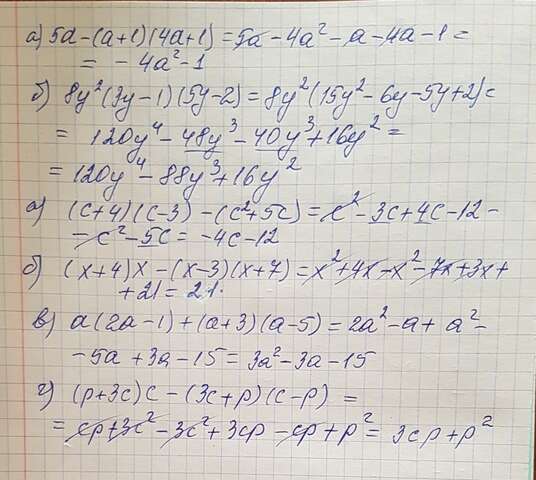 а) 5a-(a+1)(4a+1)=5a-4a²-a-4a-1=
= -4a²-1
б) 8y²(3y-1)(5y-2)=8y²(15y²-6y-5y+2)=
= 120y⁴-48y³-40y³+16y²=
= 120y⁴-88y³+16y²
а) (c+4)(c-3)-(c²+5c)=c²-3c+4c-12-
-c²-5c=-4c-12
б) (x+4)x-(x-3)(x+7)=x²+4x-x²-7x+3x+
+21=21.
в) a(2a-1)+(a+3)(a-5)=2a²-a+a²-
-5a+3a-15=3a²-3a-15
г) (p+3c)c-(3c+p)(c-p)=
= cp+3c²-3c²+3cp-cp+p²=3cp+p²